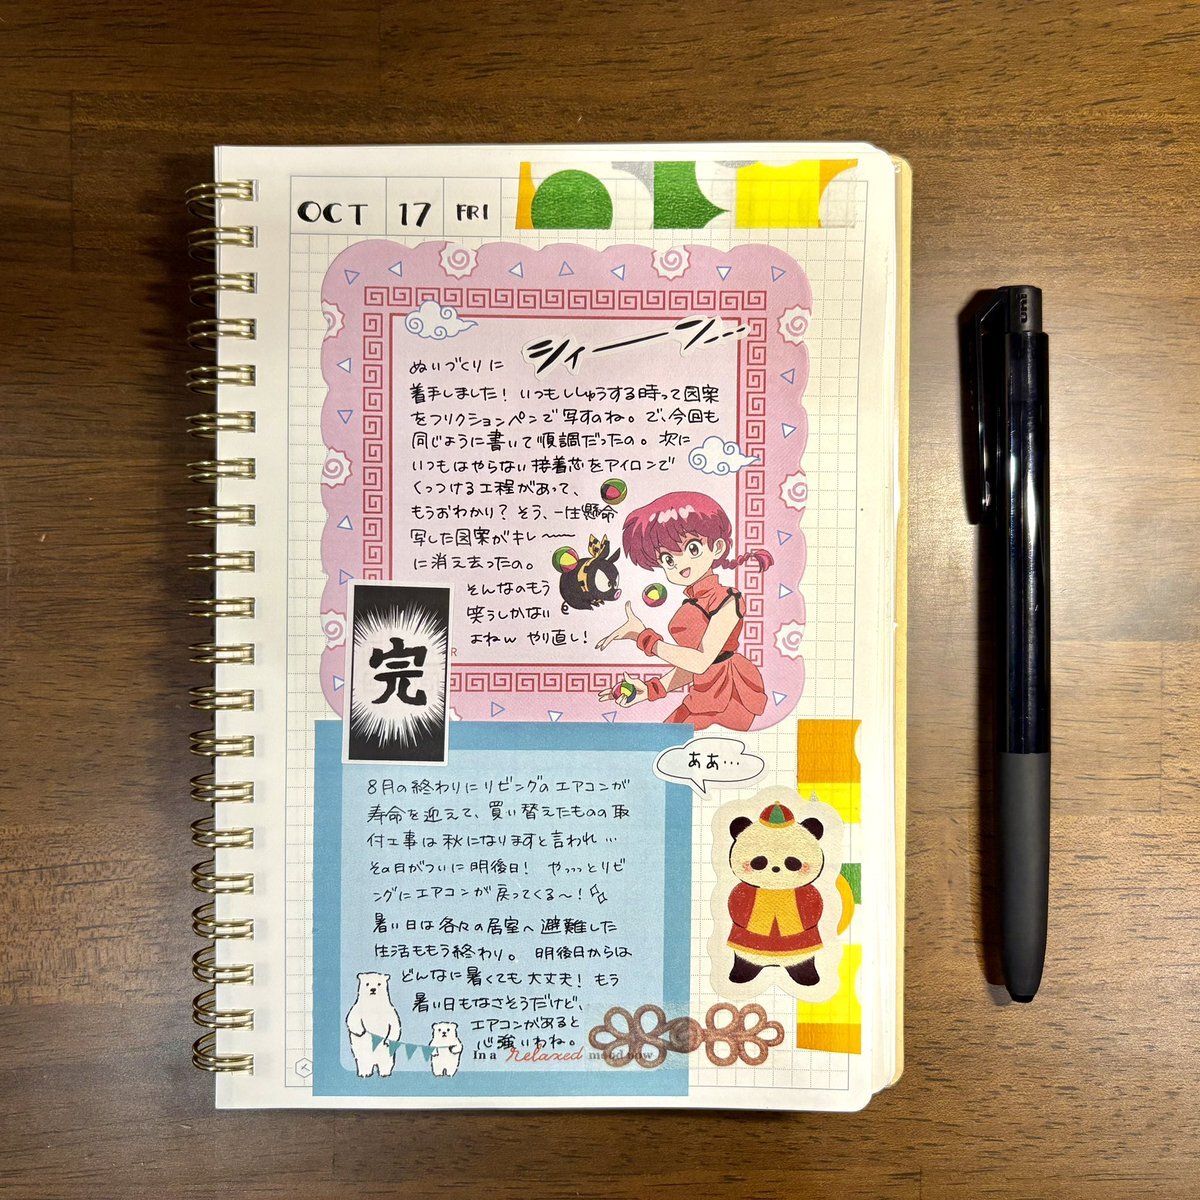 OCT 17 FRI
シィーーン…
ぬいづくりに
着手しました！いつもししゅうする時って図案
をフリクションペンで写すのね。で、今回も
同じように書いて順調だったの。次に
いつもはやらない接着芯をアイロンで
くっつける工程があって、
もうおわかり？そう、一生懸命
写した図案がキレ〜〜
に消え去ったの。
そんなのもう
笑うしかない
よねw やり直し！
R
完
ああ…
8月の終わりにリビングのエアコンが
寿命を迎えて、買い替えたものの取
付工事は秋になりますと言われ…
その日がついに明後日！やっっっとリビ
ングにエアコンが戻ってくる〜！
暑い日は各々の居室へ避難した
生活ももう終わり。明後日からは
どんなに暑くても大丈夫！もう
暑い日もなさそうだけど、
エアコンがあると
心強いわね。
In a relaxed mood now